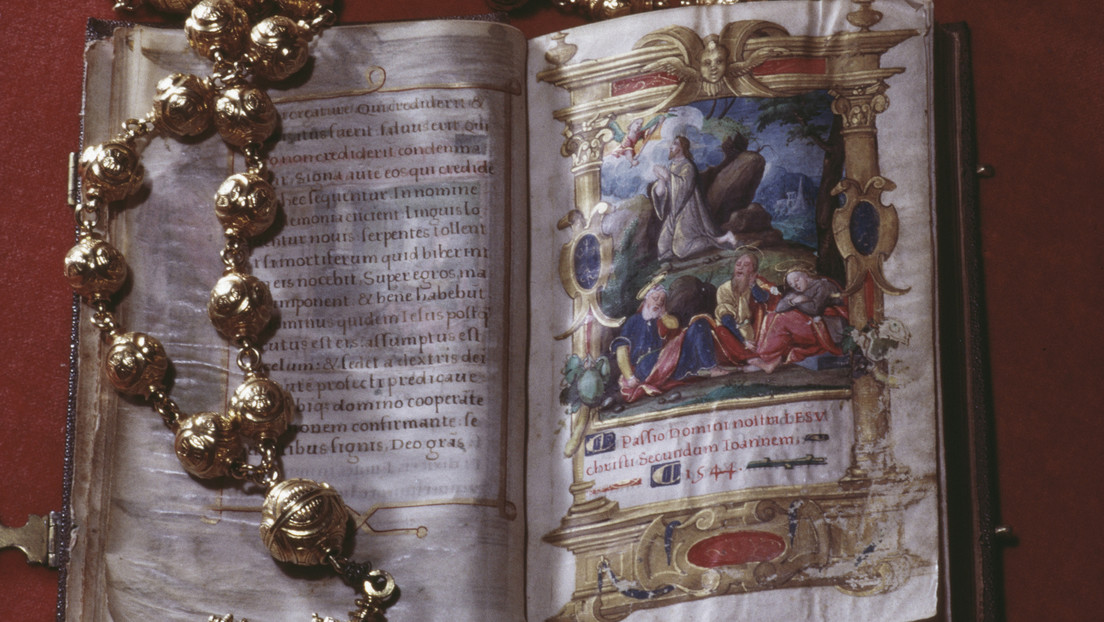 Qui crediderit &
fuerit. saluus erit. Qui
non crediderit condemna
Signa aute eos qui credide
hec sequentur. In nomine
emonia eiicient. Linguis lo
ntur nouis. serpentes tollent
si mortiferum quid biberint
eis nocebit. Super egros ma
mponent. & bene habebut.
minus quidem Iesus postq
cutus est eis. assumptus est
celum: & sedet a dextris dei
aute profecti predicaue
bique domino cooperate
onem confirmante: se
tibus signis. Deo gras
Passio Domini nostri IESV
christi Secundum Ioannem.
1544.